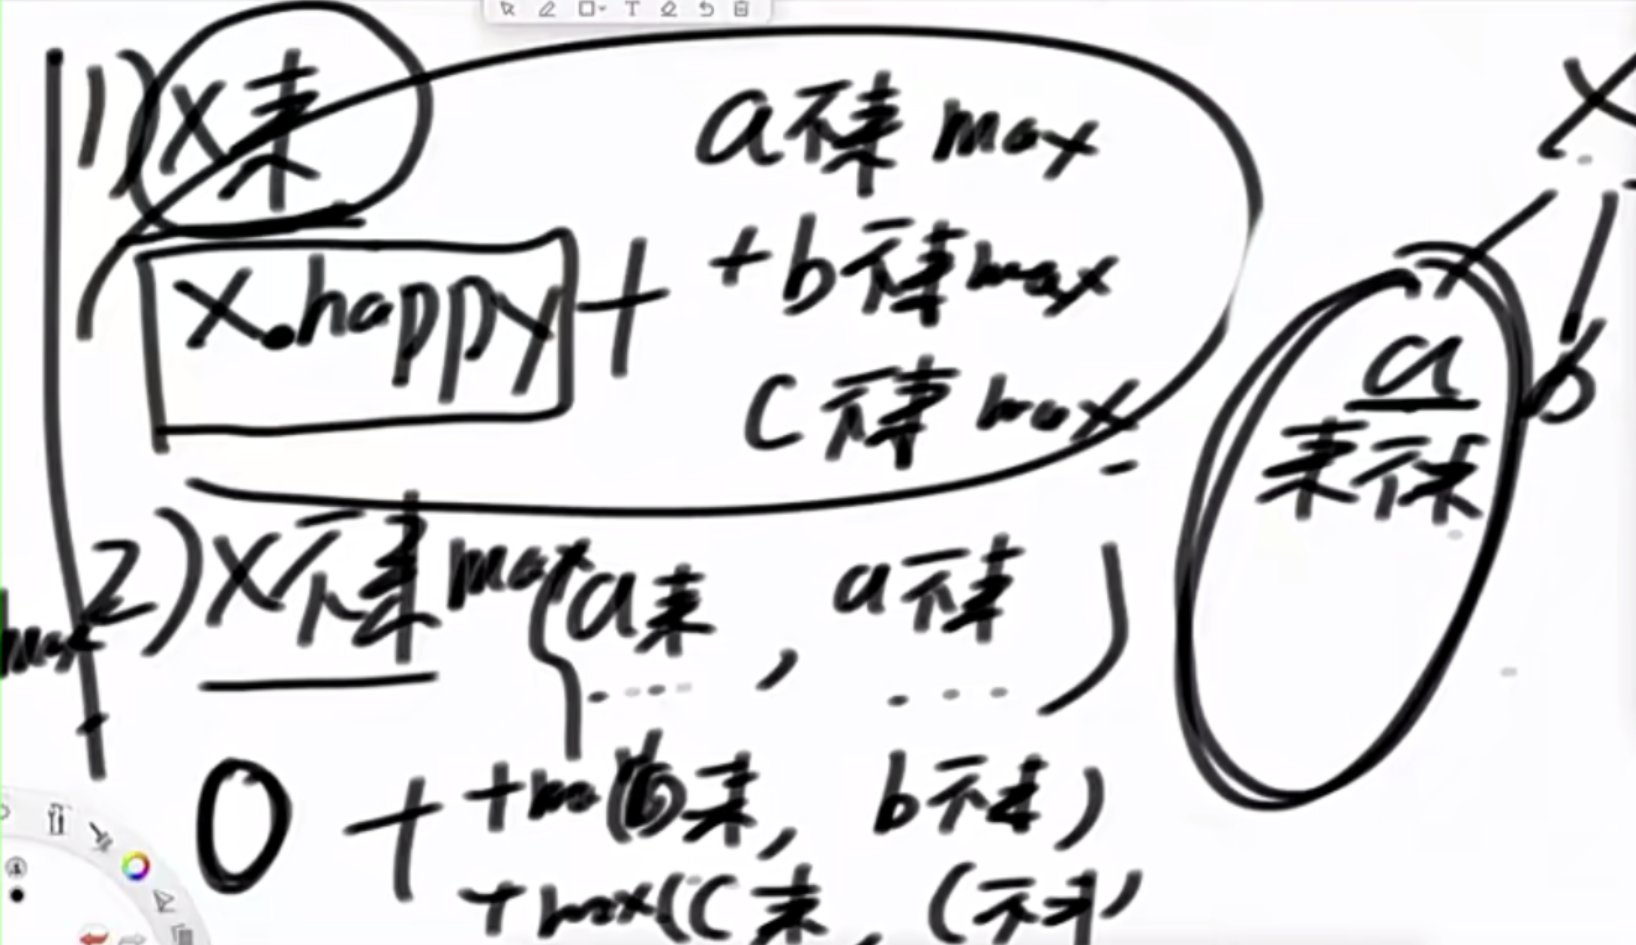 1) x来
x.happy +
a不来 max
+b不来 max
c不来 max
2) x不来 max(a来, a不来)
0 + +max(b来, b不来)
+max(c来, c不来)
x
a
b
来不来